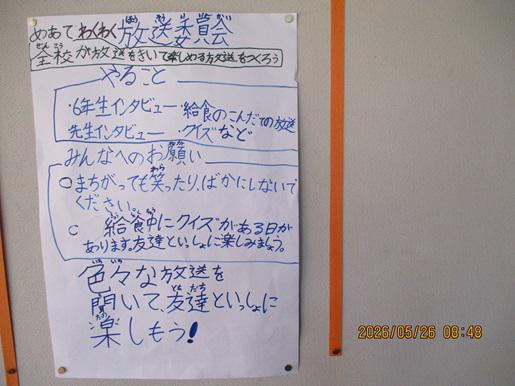 めあて わくわく放送委員会
全校が放送をきいて楽しめる放送をつくろう
やること
・6年生インタビュー ・給食のこんだての放送
先生インタビュー ・クイズなど
みんなへのお願い
○まちがっても笑ったり、ばかにしないで
ください。
○ 給食中にクイズがある日が
あります。友達といっしょに楽しみましょう。
色々な放送を
聞いて、友達といっしょに
楽しもう!
2026/05/26 08:48